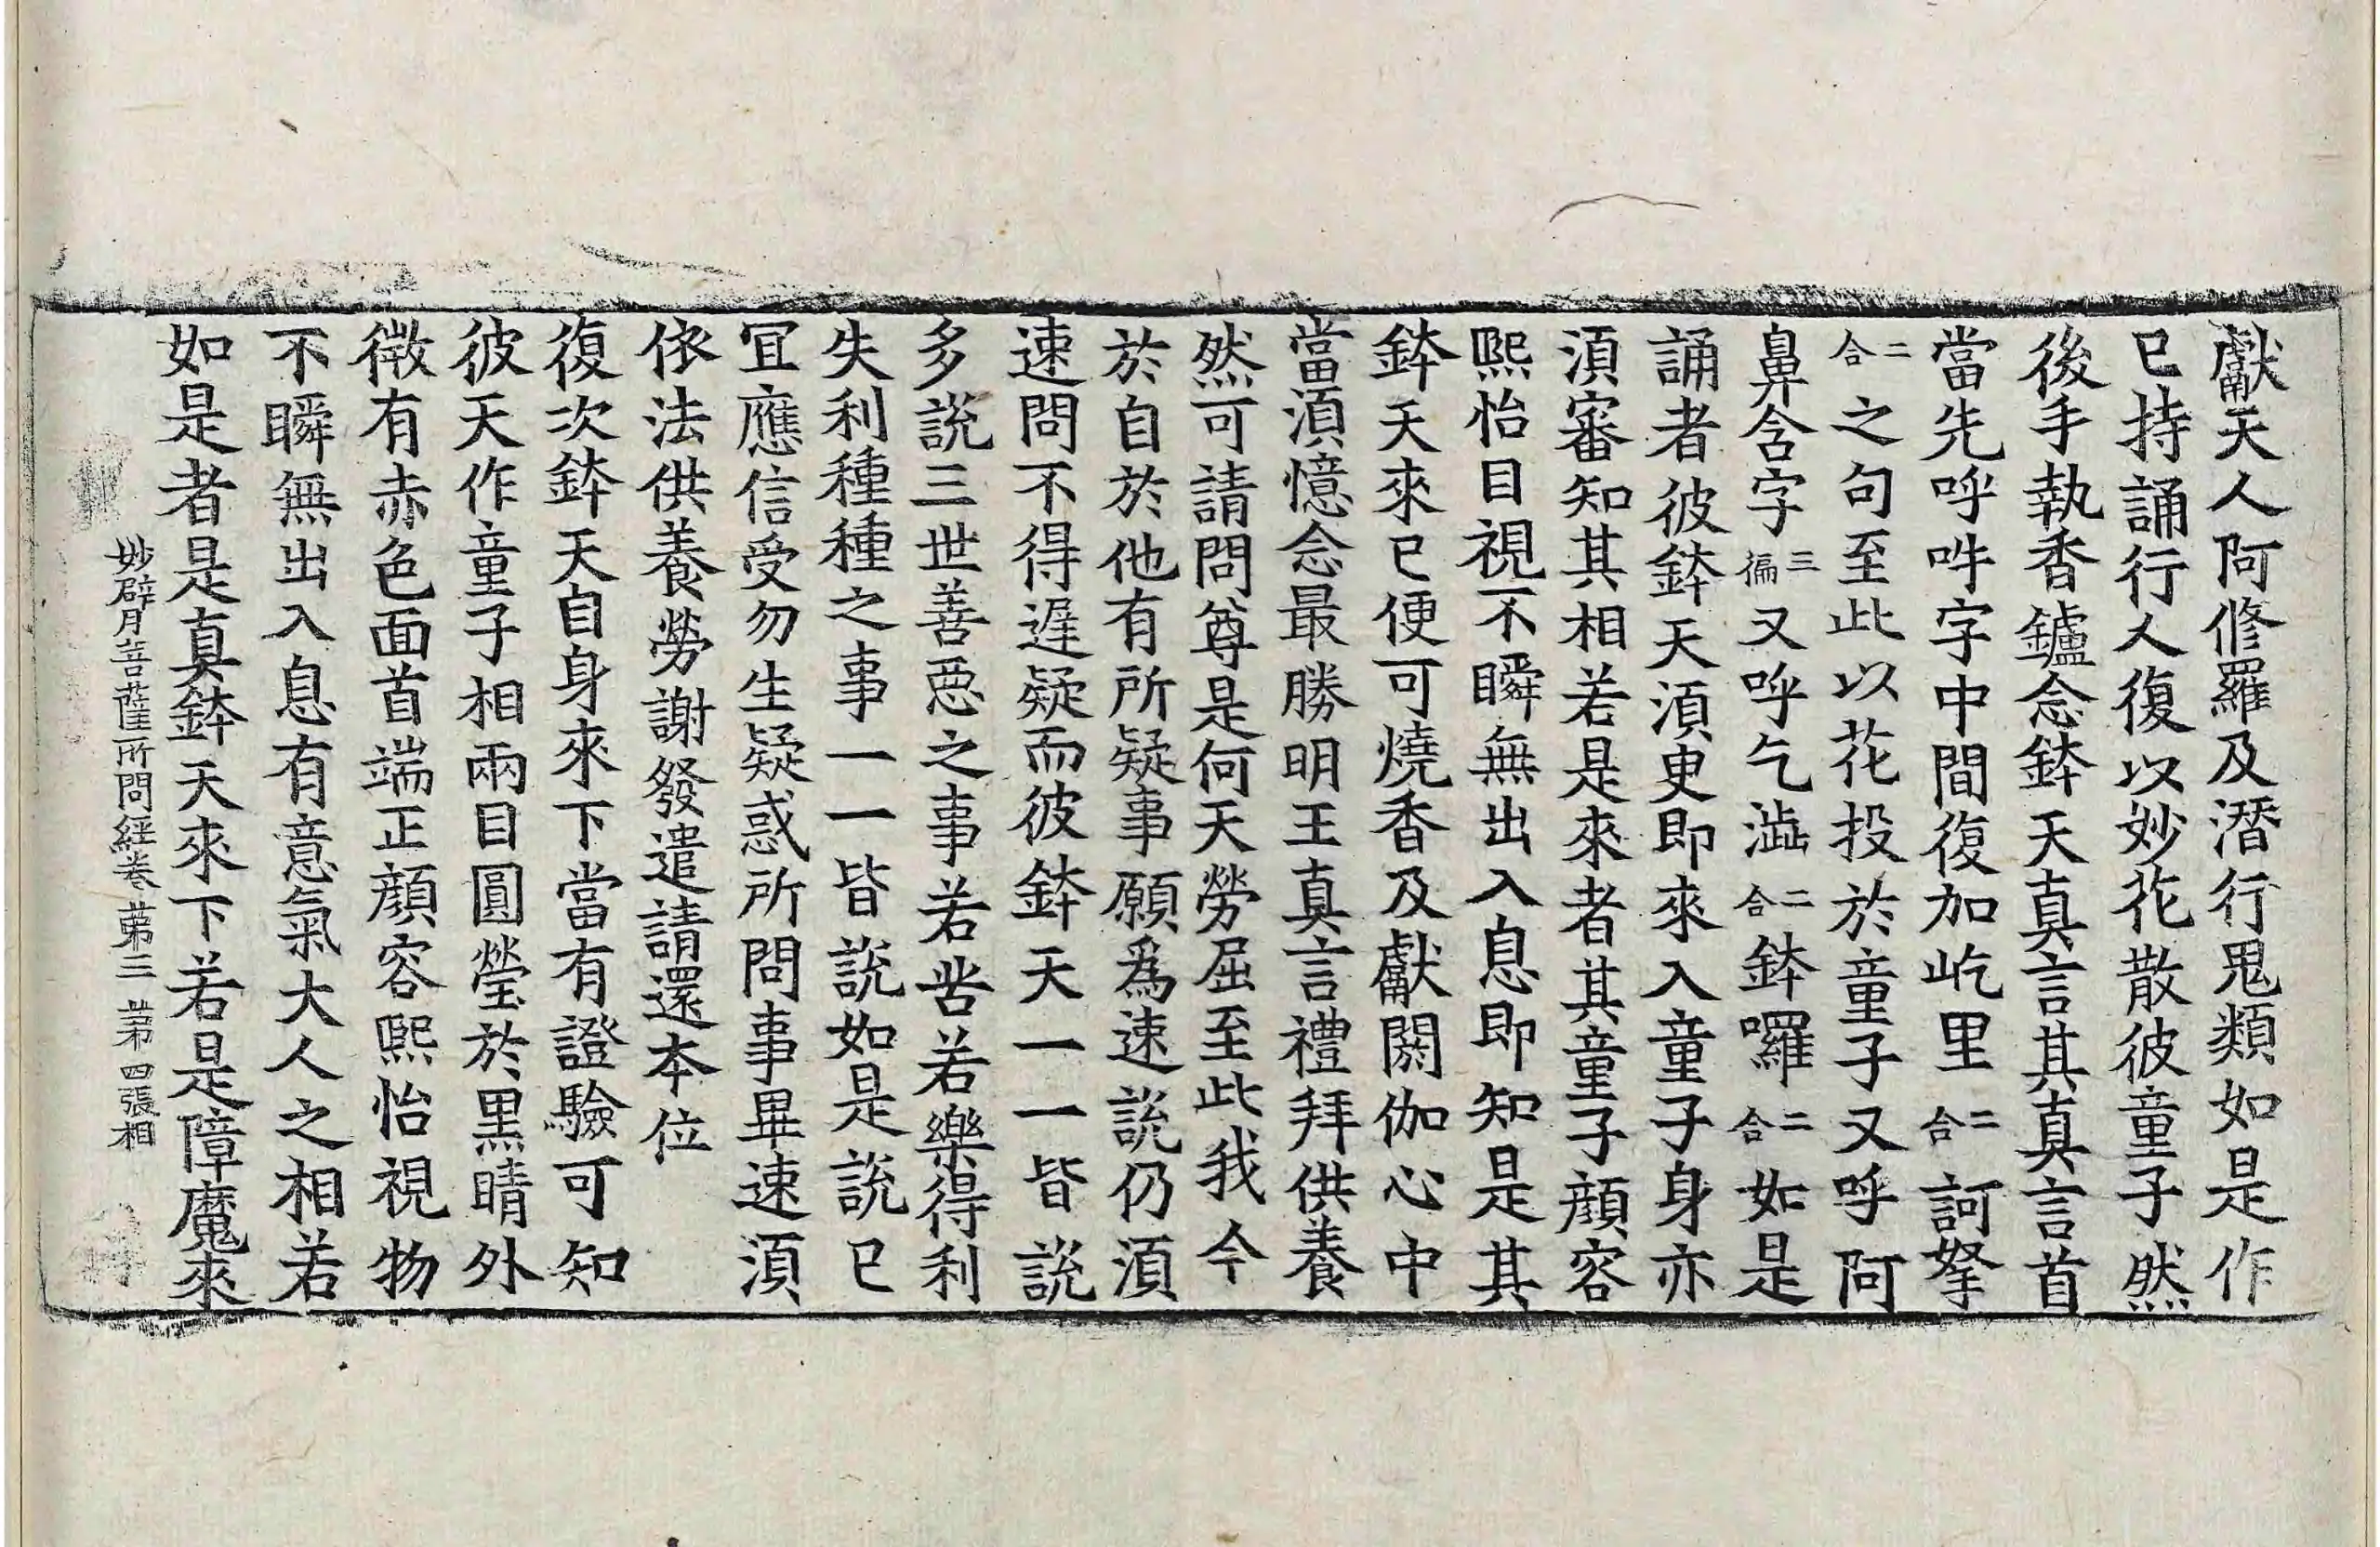 獻天人阿修羅及潛行鬼類如是作
已持誦行人復以妙花散彼童子然
後手執香鑪念鉢天真言其真言首
當先呼吽字中間復加屹里二合訶拏
二合之句至此以花投於童子又呼阿
鼻含字三徧又呼乞澁二合鉢囉二合如是
誦者彼鉢天湏更即來入童子身亦
湏審知其相若是來者其童子顔容
熙怡目視不瞬無出入息即知是其
鉢天來已便可燒香及獻閼伽心中
當湏憶念最勝明王真言禮拜供養
然可請問尊是何天勞屈至此我今
於自於他有所疑事願爲速說仍湏
速問不得遲疑而彼鉢天一一皆說
多說三世善惡之事若苦若樂得利
失利種種之事一一皆說如是說已
冝應信受勿生疑惑所問事畢速湏
依法供養勞謝發遣請還本位
復次鉢天自身來下當有證驗可知
彼天作童子相兩目圓瑩於黑睛外
微有赤色面首端正顔容熙怡視物
不瞬無出入息有意氣大人之相若
如是者是真鉢天來下若是障魔來
妙臂菩薩所問經卷苐三 苐四張相